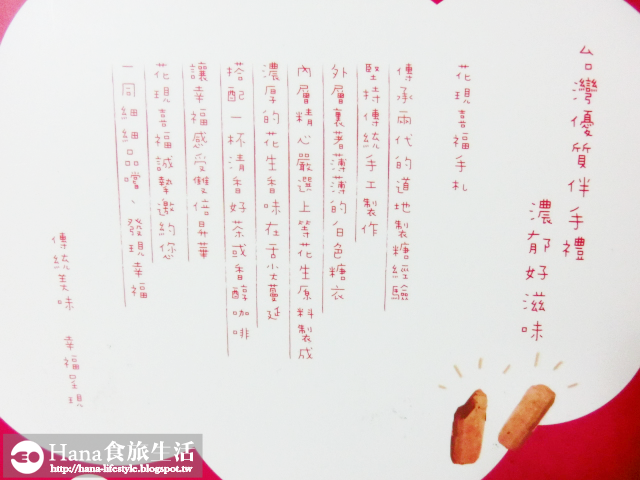 台灣優質伴手禮
濃郁好滋味
花現喜福手札
傳承兩代的道地製糖經驗
堅持傳統手工製作
外層裹著薄薄的白色糖衣
內層精心嚴選上等花生原料製成
濃厚的花生香味在舌尖蔓延
搭配一杯清香好茶或香醇咖啡
讓幸福感受雙倍昇華
花現喜福誠摯邀約您
一同細細品嚐、發現幸福
傳統美味 幸福呈現
Hana食旅生活
http://hana-lifestyle.blogspot.tw